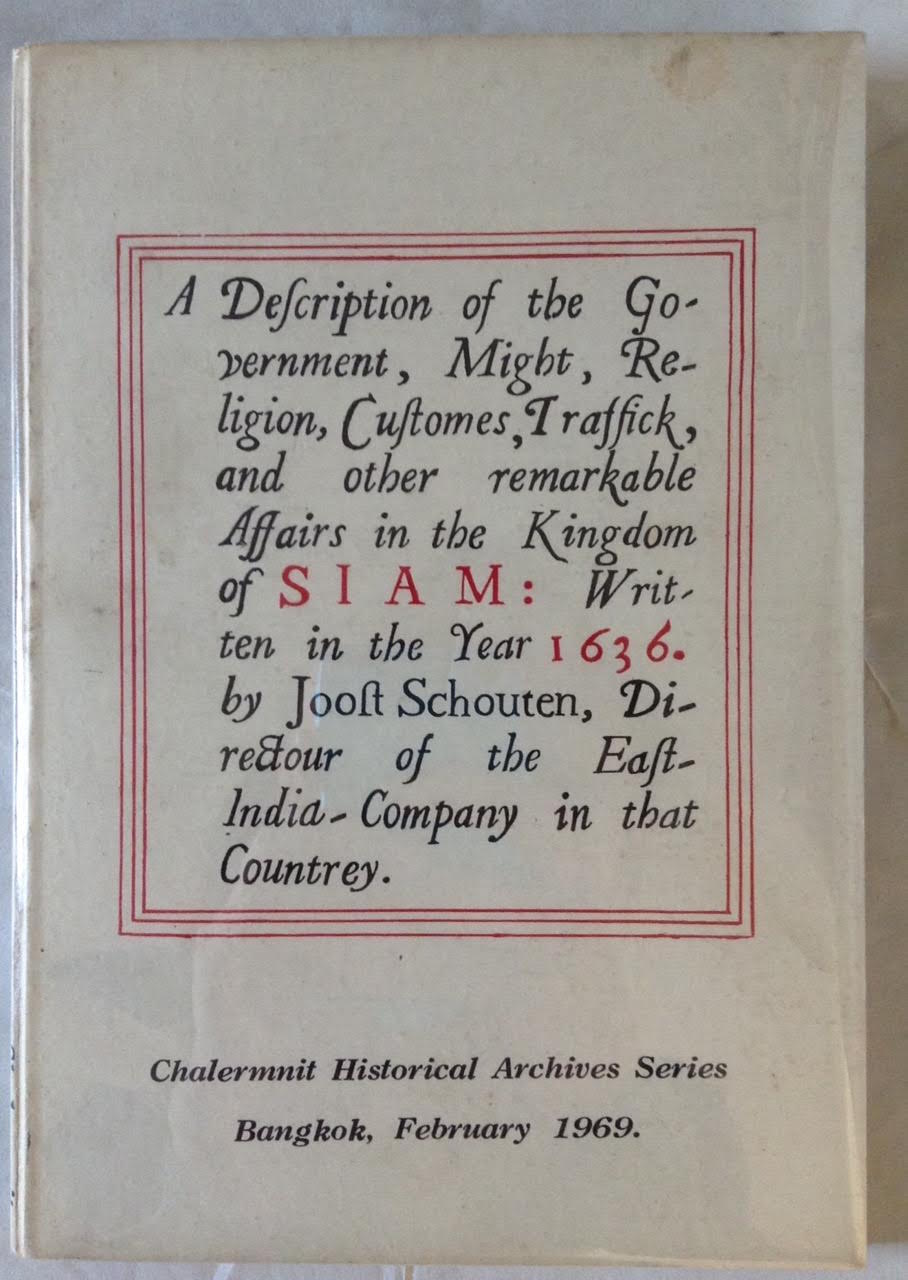 A Deſcription of the Go-
vernment, Might, Re-
ligion, Cuſtomes, Traffick,
and other remarkable
Affairs in the Kingdom
of SIAM: Writ-
ten in the Year 1636.
by Jooſt Schouten, Di-
rectour of the Eaſt-
India-Company in that
Countrey.
Chalermnit Historical Archives Series
Bangkok, February 1969.